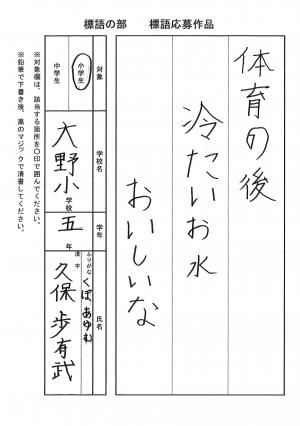 標語の部　標語応募作品
体育の後
冷たいお水
おいしいな
対象
小学生
中学生
学校名
大野小学校
学年
五年
氏名
ふりがな くぼ あゆむ
漢字 久保 歩有武
※対象欄は、該当する箇所を〇印で囲んでください。
※鉛筆で下書き後、黒のマジックで清書してください。